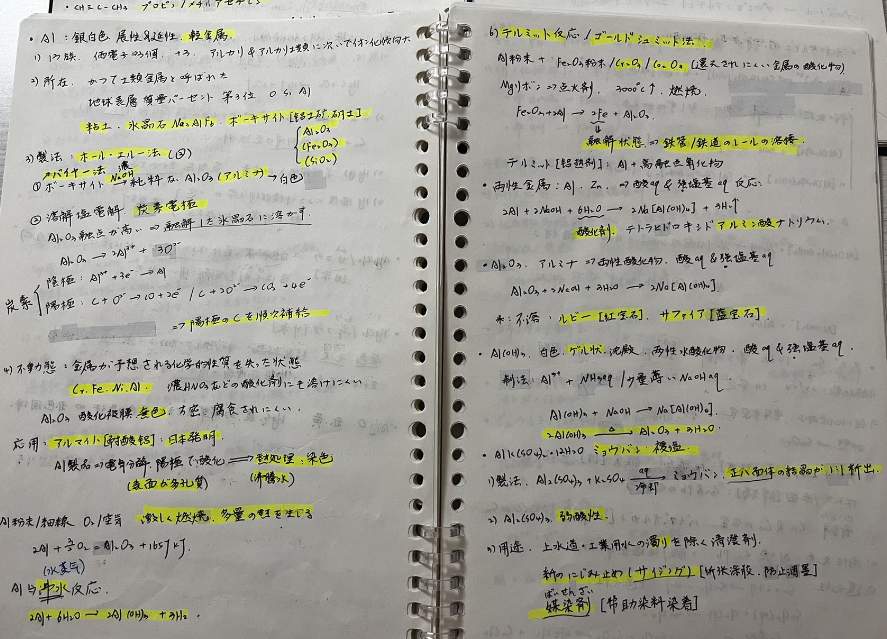 CH≡C-CH3 プロピン/メチルアセチレン
・Al:銀白色 展性&延性 軽金属.
1) 13族 価電子の3個, +3, アルカリ&アルカリ土類に次いでイオン化傾向大
2) 所在. かつて土類金属と呼ばれた
地球表層 質量パーセント 第3位 O Si Al
粘土. 氷晶石 Na3AlF6. ボーキサイト[铝土矿, 矾土]
Al2O3
(Fe2O3)
(SiO2)
3) 製法:ホール・エルー法(②)
バイヤー法 濃
①ボーキサイト NaOH→純粋な Al2O3(アルミナ)→白色
② 溶解塩電解 炭素電極
Al2O3融点が高い⇒融解した氷晶石に溶かす.
Al2O3→2Al3+ + 3O2-
炭素
陰極:Al3+ +3e-→Al
陽極:C+O2-→CO+2e- / C+2O2-→CO2+4e-
⇒陽極のCを順次補給
4) 不動態:金属が予想される化学的性質を失った状態
Cr. Fe. Ni. Al. 濃HNO3などの酸化剤にも溶けにくい
Al2O3 酸化被膜 無色. 緻密. 腐食されにくい.
応用:アルマイト[耐酸铝]:日本発明.
Al製品⇒電気分解. 陽極で酸化⇒封処理:染色
(表面が多孔質) (沸騰水)
Al粉末/細線 O2/空気 激しく燃焼. 多量の熱を生じる
2Al+3/2O2=Al2O3+1657kJ
(水蒸気)
Alと沸水反応.
2Al+6H2O→2Al(OH)3+3H2.
6) テルミット反応/ゴールドシュミット法:
Al粉末+Fe2O3粉末/Cr2O3/Co2O3(還元されにくい金属の酸化物)
Mgリボン⇒点火剤. 3000℃↑. 燃焼.
Fe2O3+2Al→2Fe+Al2O3.
融解状態⇒鉄管/鉄道のレールの溶接.
テルミット[铝热剂]:Al+高融点酸化物
・両性金属:Al. Zn. ⇒酸aq&強塩基aq反応:
2Al+2NaOH+6H2O→2Na[Al(OH)4]+3H2↑
酸化剤. テトラヒドロキシドアルミン酸ナトリウム.
・Al2O3. アルミナ⇒両性酸化物. 酸aq&強塩基aq
Al2O3+2NaOH+3H2O→2Na[Al(OH)4]
水:不溶:ルビー[红宝石]. サファイア[蓝宝石].
・Al(OH)3. 白色. ゲル状. 沈殿. 両性水酸化物. 酸aq&強塩基aq.
制法:Al3+ + NH3aq/少量薄いNaOHaq.
Al(OH)3+NaOH→Na[Al(OH)4].
2Al(OH)3 △→ Al2O3+3H2O
・AlK(SO4)2・12H2O ミョウバン 複塩.
1) 製法. Al2(SO4)3+K2SO4 aq 冷却→ミョウバン. 正八面体の結晶が析出.
2) Al2(SO4)3. 弱酸性.
3) 用途. 上水道・工業用水の濁りを除く清澄剤.
紙のにじみ止め(サイジング)[纸状涂胶. 防止洇墨]
ばいせんざい
媒染剤 [帮助染料染着]